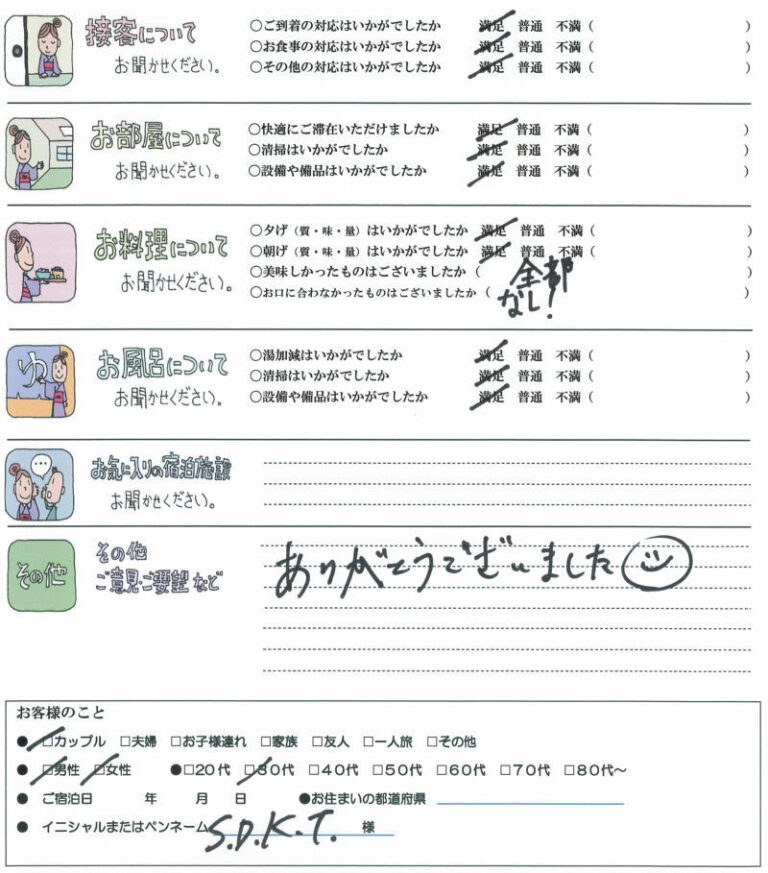 接客について
お聞かせください。
○ご到着の対応はいかがでしたか 満足 普通 不満 ( )
○お食事の対応はいかがでしたか 満足 普通 不満 ( )
○その他の対応はいかがでしたか 満足 普通 不満 ( )
お部屋について
お聞かせください。
○快適にご滞在いただけましたか 満足 普通 不満 ( )
○清掃はいかがでしたか 満足 普通 不満 ( )
○設備や備品はいかがでしたか 満足 普通 不満 ( )
お料理について
お聞かせください。
○夕げ(質・味・量)はいかがでしたか 満足 普通 不満 ( )
○朝げ(質・味・量)はいかがでしたか 満足 普通 不満 ( )
○美味しかったものはございましたか ( 全部 )
○お口に合わなかったものはございましたか ( なし! )
ゆ
お風呂について
お聞かせください。
○湯加減はいかがでしたか 満足 普通 不満 ( )
○清掃はいかがでしたか 満足 普通 不満 ( )
○設備や備品はいかがでしたか 満足 普通 不満 ( )
お気に入りの宿泊施設
お聞かせください。
その他
その他
ご意見・ご要望など
ありがとうございました
お客様のこと
● □カップル □夫婦 □お子様連れ □家族 □友人 □一人旅 □その他
● □男性 □女性 ●□20代 □30代 □40代 □50代 □60代 □70代 □80代~
● ご宿泊日 年 月 日 ●お住まいの都道府県
● イニシャルまたはペンネーム S.D.K.T. 様